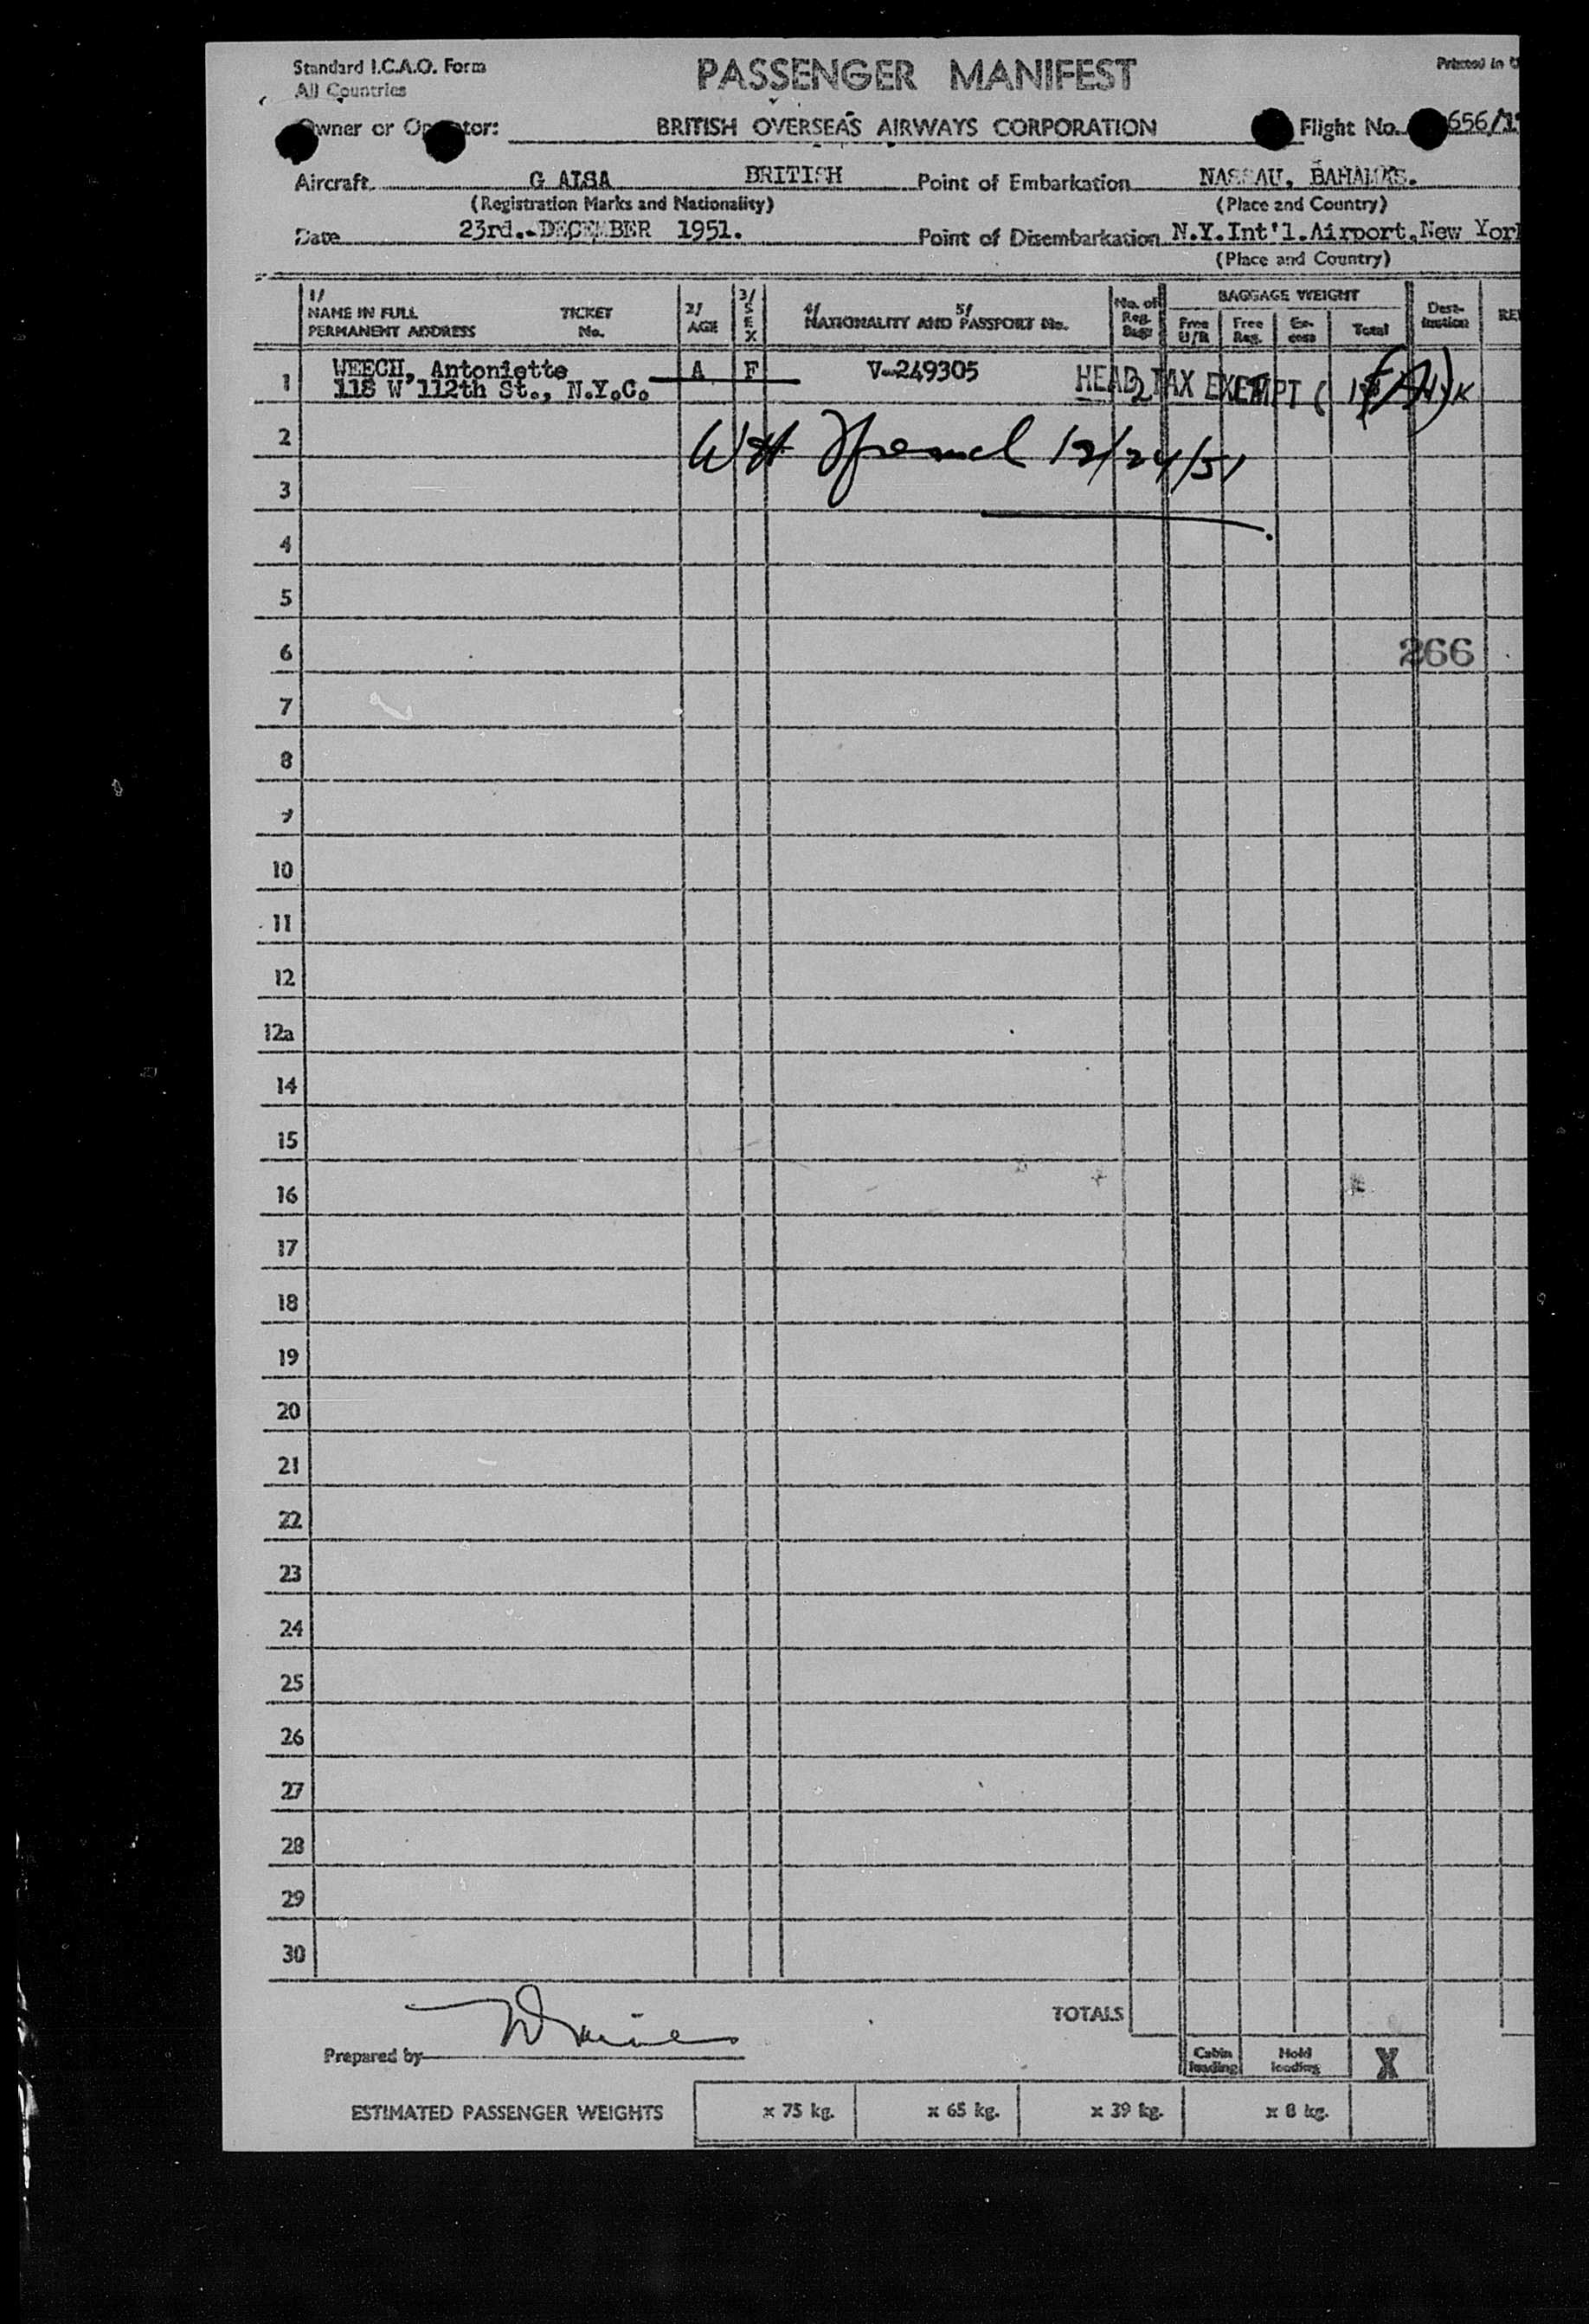 Standard I.C.A.O. Form
All Countries
PASSENGER MANIFEST
Printed in
Owner or Operator: BRITISH OVERSEAS AIRWAYS CORPORATION Flight No. 656/
Aircraft G ALSA BRITISH Point of Embarkation NASSAU, BAHAMAS.
(Registration Marks and Nationality) (Place and Country)
Date 23rd. DECEMBER 1951. Point of Disembarkation N.Y.Int'l.Airport,New York
(Place and Country)
1/ NAME IN FULL PERMANENT ADDRESS TICKET No. 2/ AGE 3/ SEX 4/ 5/ NATIONALITY AND PASSPORT No. No. of Reg. Bags BAGGAGE WEIGHT Free U/R Free Reg. Ex-cess Total Dest-ination RE
1 WEECH, Antoniette A F V-249305
118 W 112th St., N.Y.C. 2 HEAD TAX EXEMPT (
2 12/24/51
3
4
5
6 266
7
8
9
10
11
12
12a
14
15
16
17
18
19
20
21
22
23
24
25
26
27
28
29
30
TOTALS
Prepared by
Cabin loading Hold loading X
ESTIMATED PASSENGER WEIGHTS x 75 kg. x 65 kg. x 39 kg. x 8 kg.